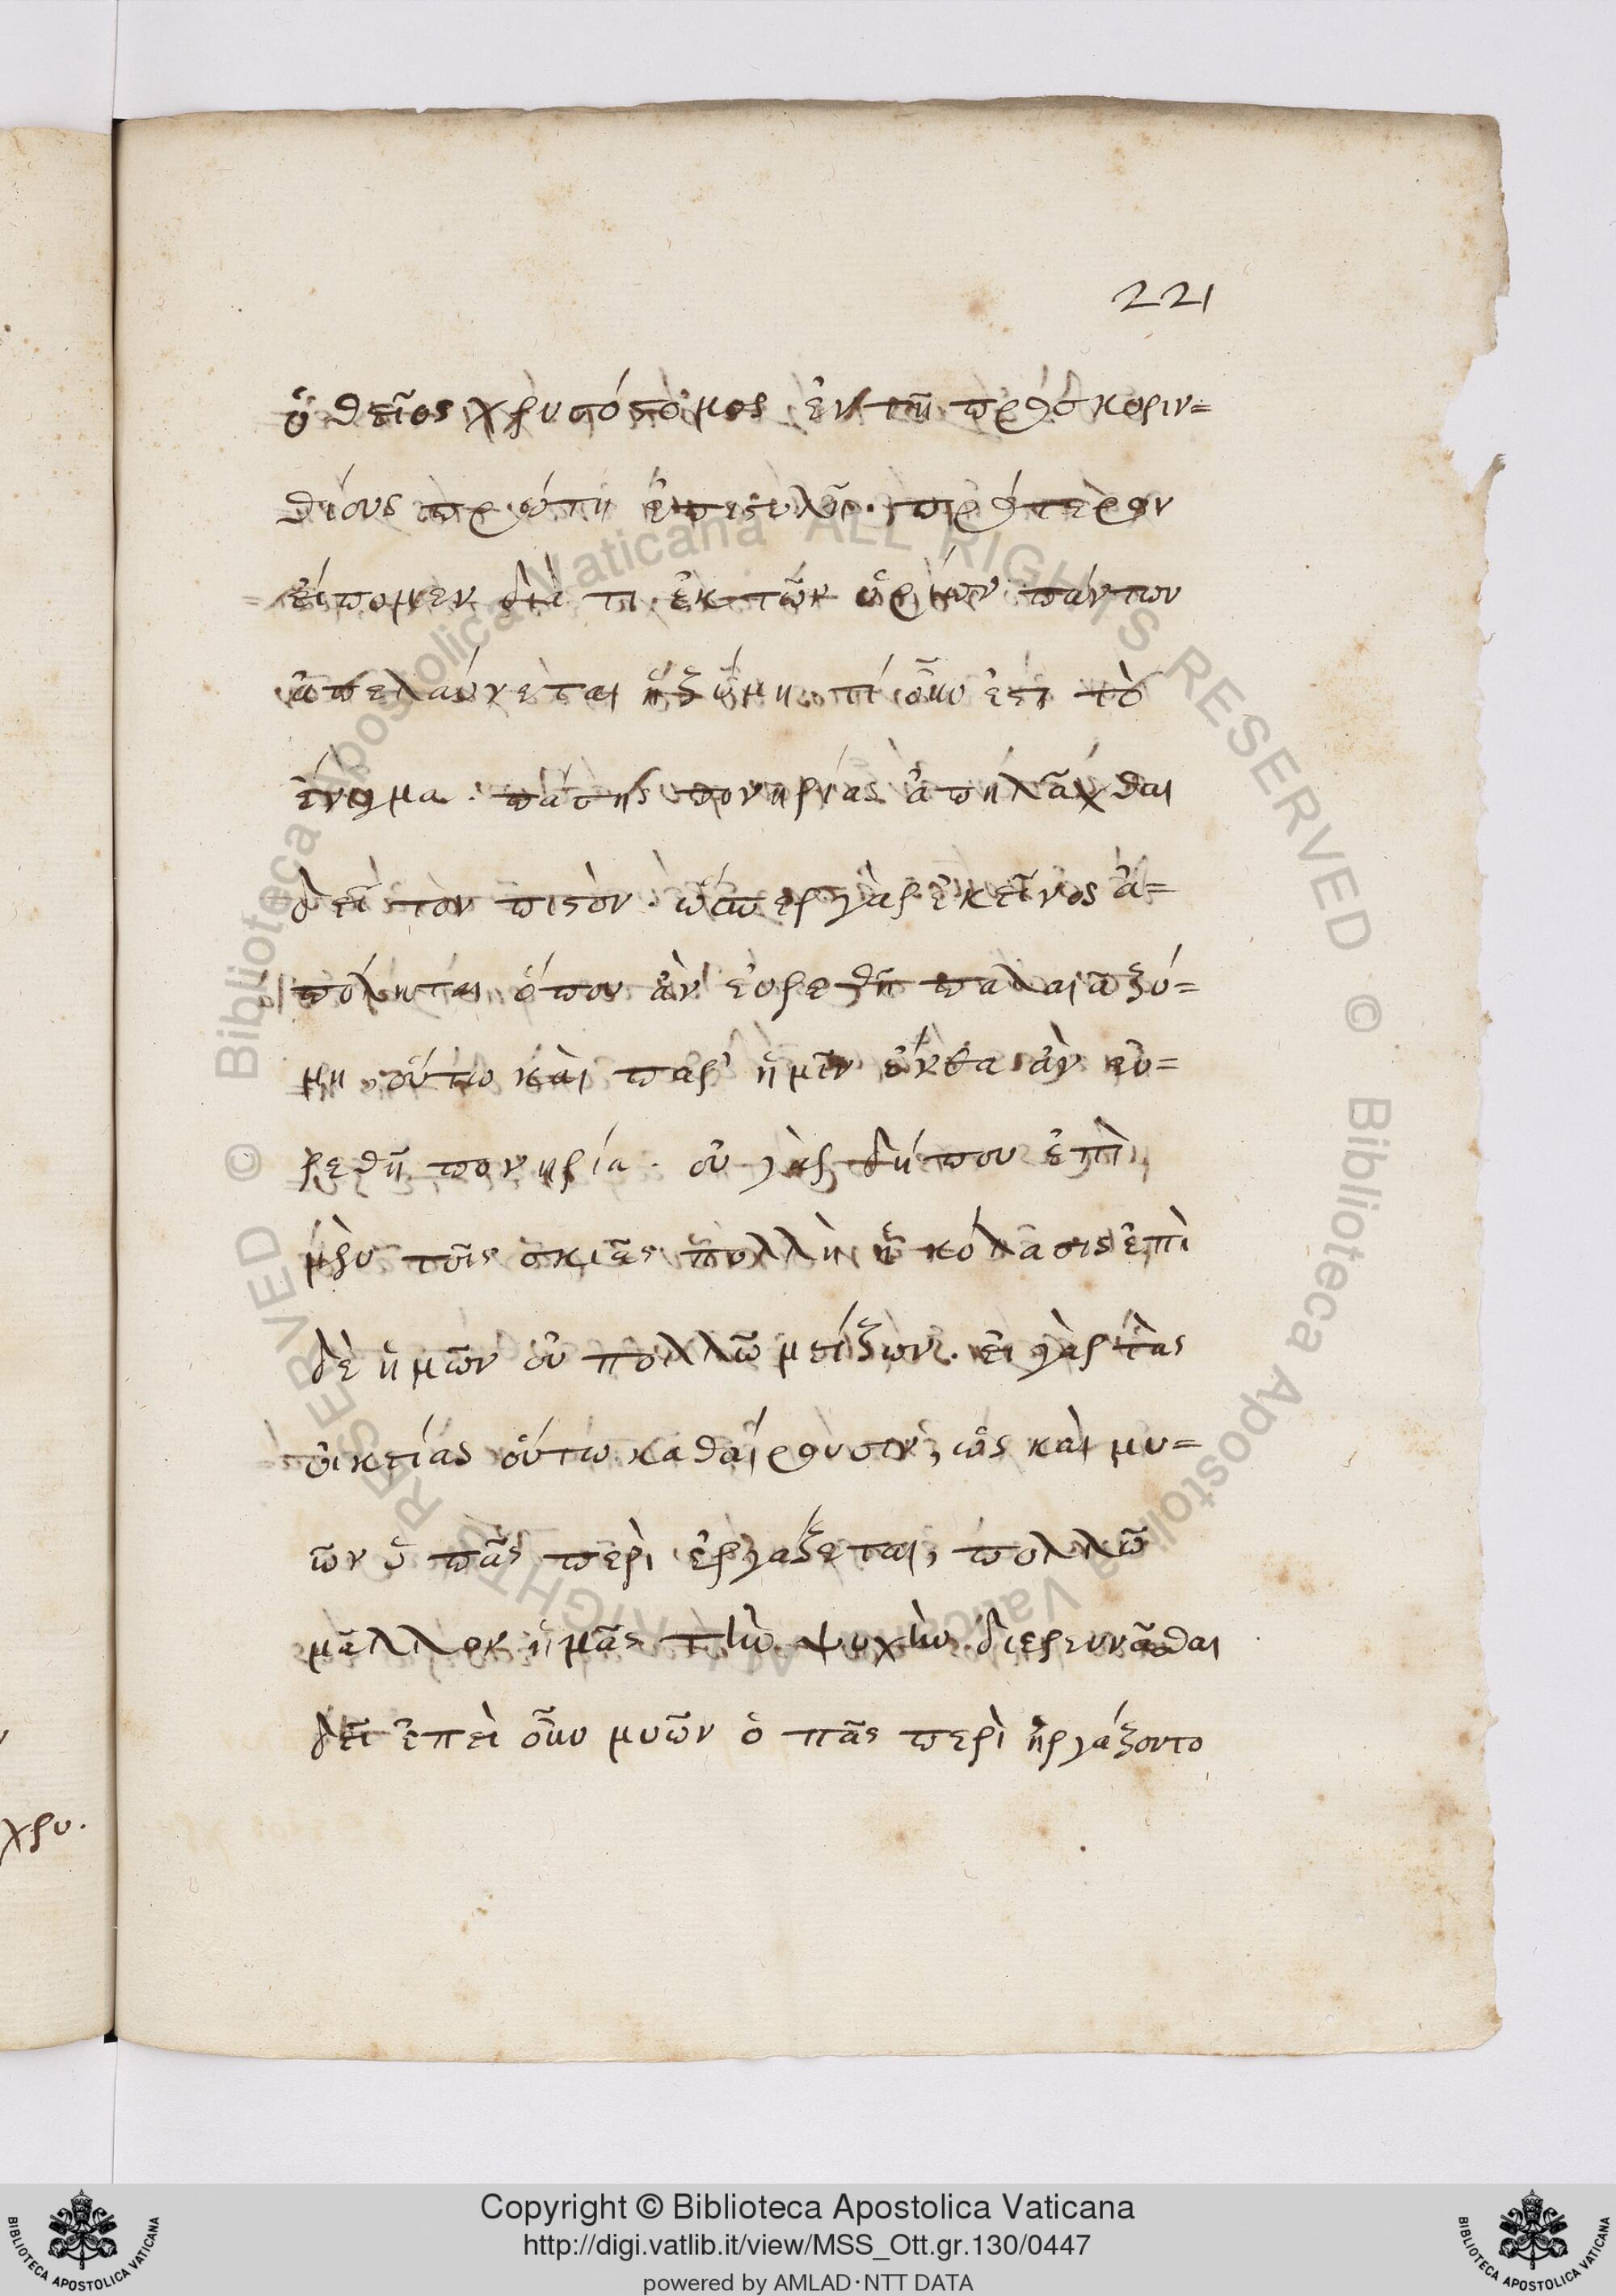 221
ὁ θεῖος χρυσόστομος ἐν τῇ πρὸς κοριν=
θίους πρώτῃ ἐπιστολῇ. πρότερον
εἴπομεν διὰ τί ἐκ τῶν ὁρίων πάντων
ἀπελαύνεται ἡ ζύμη. τί οὖν ἐστι τὸ
πάσης πονηρίας ἀπηλλάχθαι
δεῖ τὸν πιστὸν. ὥσπερ γὰρ ἐκεῖνος ἀ=
πόλυται ὅπου ἂν εὑρεθῇ παλαιὰ ζύ=
μη, οὕτω καὶ παρ' ἡμῖν ἔνθα ἂν εὑ=
ρεθῇ πονηρία. οὐ γὰρ δήπου ἐπὶ
μὲν τῆς σκιᾶς πολλὴ ἡ κόλασις ἐπὶ
δὲ ἡμῶν οὐ πολλῶ μείζων. εἰ γὰρ τὰς
οἰκείας οὕτω καθαίρουσιν, ὡς καὶ μυ=
ῶν ὀπὰς περιεργάζεται, πολλῶ
μᾶλλον ἡμᾶς τὴν ψυχὴν διερευνᾶσθαι
δεῖ ἐπεὶ οὖν μυῶν ὁ πὰς περὶ ἠργάζοντο
χρυ.
Copyright © Biblioteca Apostolica Vaticana
http://digi.vatlib.it/view/MSS_Ott.gr.130/0447
powered by AMLAD·NTT DATA
BIBLIOTECA APOSTOLICA VATICANA
BIBLIOTECA APOSTOLICA VATICANA
© Biblioteca Apostolica Vaticana ALL RIGHTS RESERVED
© Biblioteca Apostolica Vaticana ALL RIGHTS RESERVED